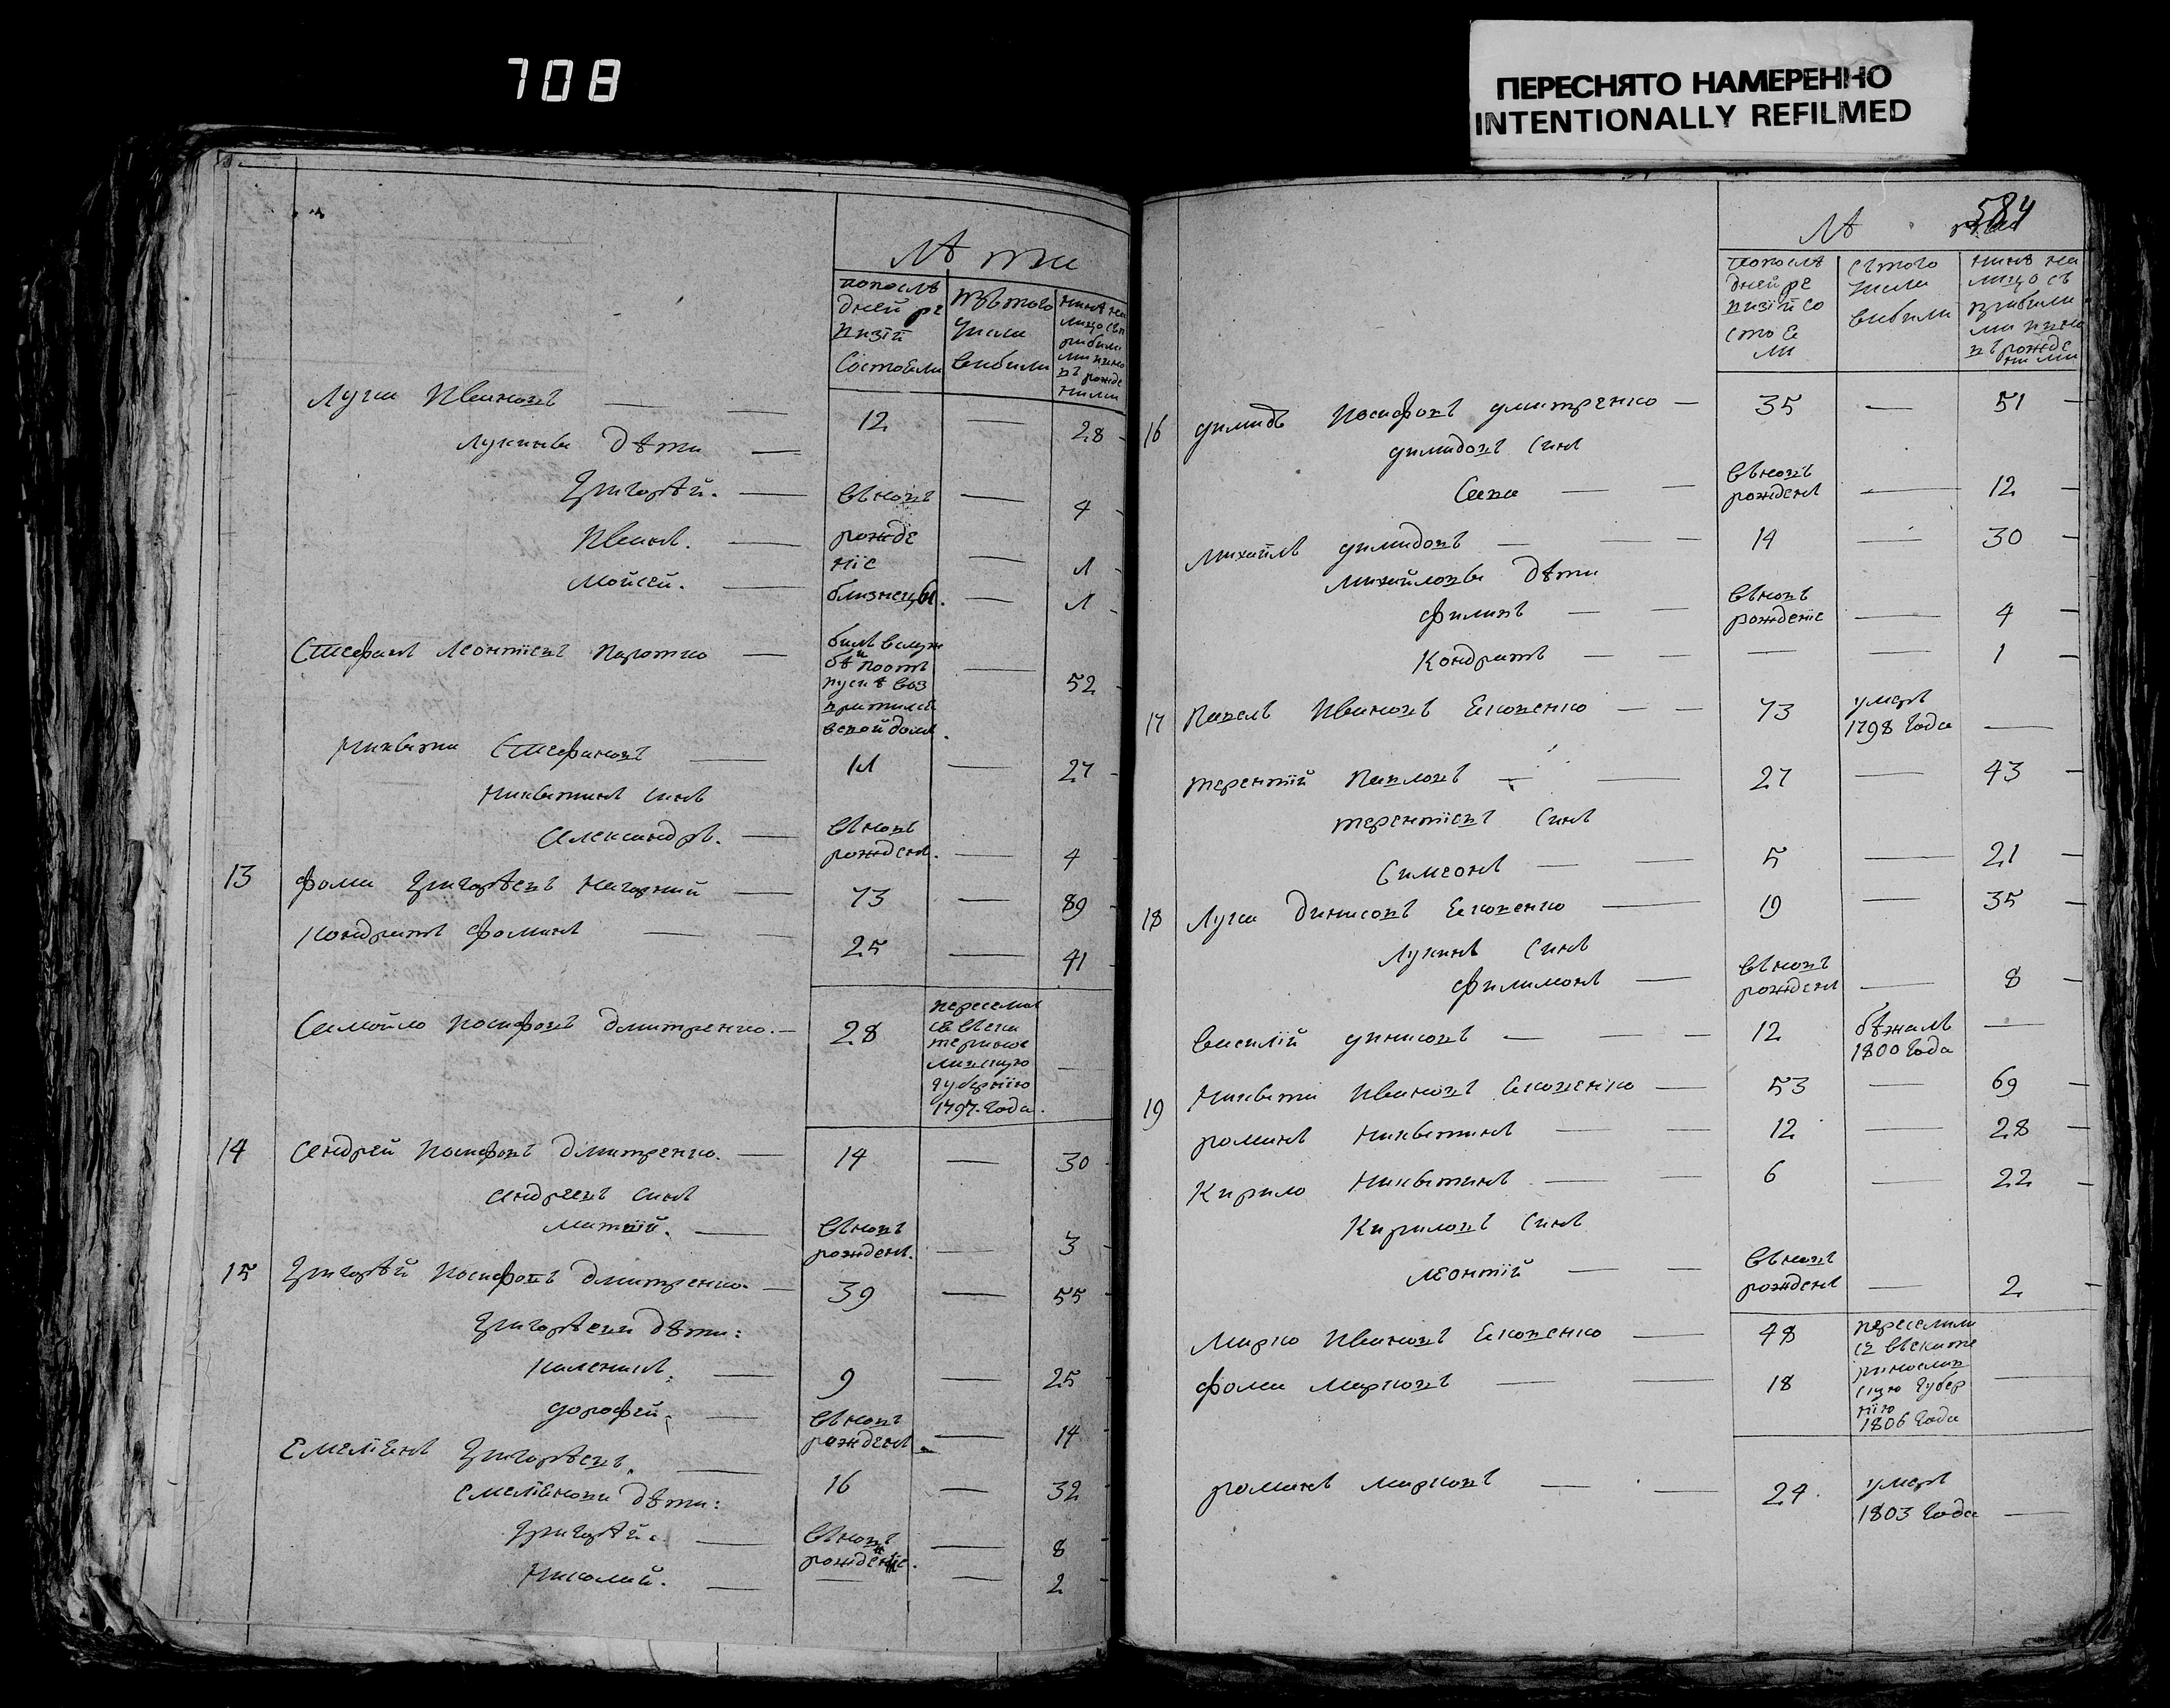 708
ПЕРЕСНЯТО НАМЕРЕННО
INTENTIONALLY REFILMED
попослѣ
дней ре
визіи
состояли
изътого
числа
выбыли
Лука Ивановъ — — 12 — 28
Лукины дѣти —
Григорѣй. — вновь — 4
Иванъ. — рожде
ніе — 1
Мойсей. — близнецы. — 1
Стефанъ Леонтіевъ —
52
Никита Стефановъ — 11 — 27
Никитинъ синъ
Александръ. — вновь
рожденъ. — 4
13 Фома Григорѣевъ Нагорний — 73 — 89
Кондратъ Фоминъ — — 25 — 41
Самойло Иосифовъ Дмитренко. — 28 переселил
ся векa
теринос
лавскую
губернію
1797. года. —
14 Андрей Иосифовъ Дмитренко. — 14 — 30
Андреевъ синъ
Матвій. — вновь
рожденъ. — 3
15 Григорѣй Иосифовъ Дмитренко. — 39 — 55
Григорѣеви дѣти:
Каленикъ. — 9 — 25
Дорофей. — вновь
рожденъ. — 14
Емеліянъ Григорѣевъ. — 16 — 32
Емеліянови дѣти:
Григорѣй. — вновь
рожденіе. — 8
Николай. — — — 2
584
попослѣ
дней ре
визіи со
стоя
ли
сътого
числа
выбыли
16 Димидъ Иосифовъ Дмитренко — 35 — 51
Димидовъ синъ
Сава — — вновь
рожденъ — 12
Михайлъ Димидовъ — — 14 — 30
Михайловы дѣти
Филипъ — — вновь
рожденіе — 4
Кондратъ — — — — 1
17 Павелъ Ивановъ Яковенко — — 73 умеръ
1798 года —
Терентій Павловъ — — 27 — 43
Терентіевъ синъ
Симеонъ — — 5 — 21
18 Лука Динисовъ Яковенко — 19 — 35
Лукинъ синъ
Филимонъ — вновь
рожденъ — 8
Василій Динисовъ — — 12 бѣжалъ
1800 года —
19 Никита Ивановъ Яковенко — 53 — 69
Романъ Никитинъ — — 12 — 28
Кирило Никитинъ — — 6 — 22
Кириловъ синъ
Леонтій — — вновь
рожденъ — 2
Марко Ивановъ Яковенко — 48 переселили
ся векате
Фома Марковъ — — 18 ринослав
скую губер
нію
1806 года —
Романъ Марковъ — — 24 умеръ
1803 года —